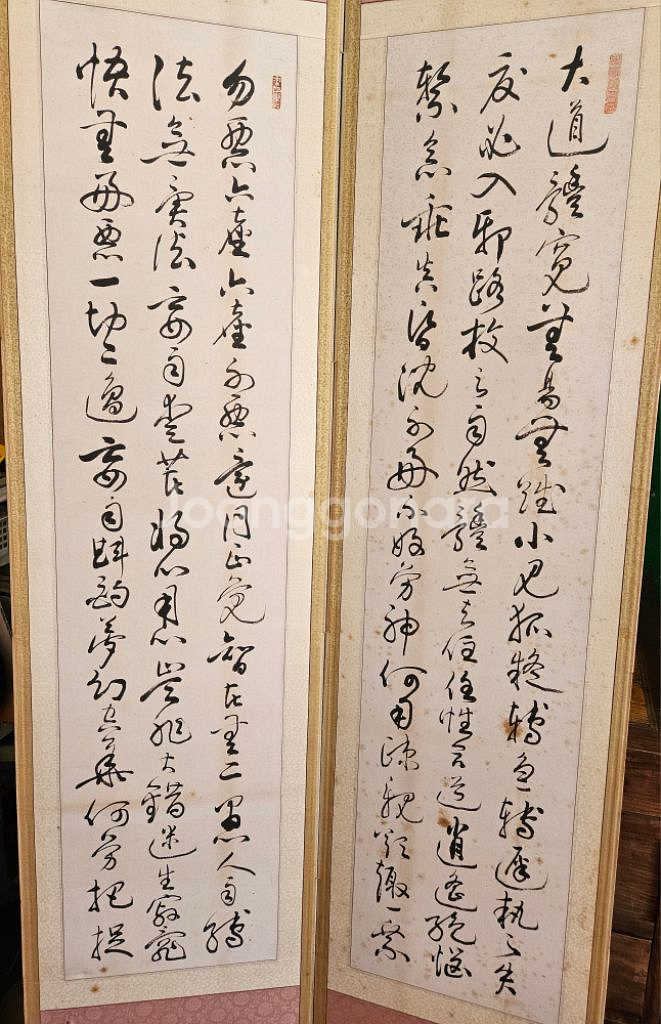 大道體寬無易無難小見狐疑轉急轉遲執之失
度必入邪路放之自然體無去住任性合道逍遙絕惱
繫念乖真昏沈不好不好勞神何用疎親欲趣一乘
勿惡六塵六塵不惡還同正覺智者無為愚人自縛
法無異法妄自愛著將心用心豈非大錯迷生寂亂
悟無好惡一切二邊妄自斟酌夢幻空華何勞把捉
Joonggonara